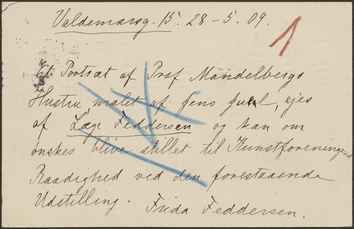 Valdemarsg. 15. 28-5.09.
1
Et Portræt af Prof. Mandelbergs
Hustru malet af Jens Juel, ejes
af Læge Feddersen og kan om
ønskes blive stillet til Kunstforeningens
Raadighed ved den forestaaende
Udstilling. Frida Feddersen.